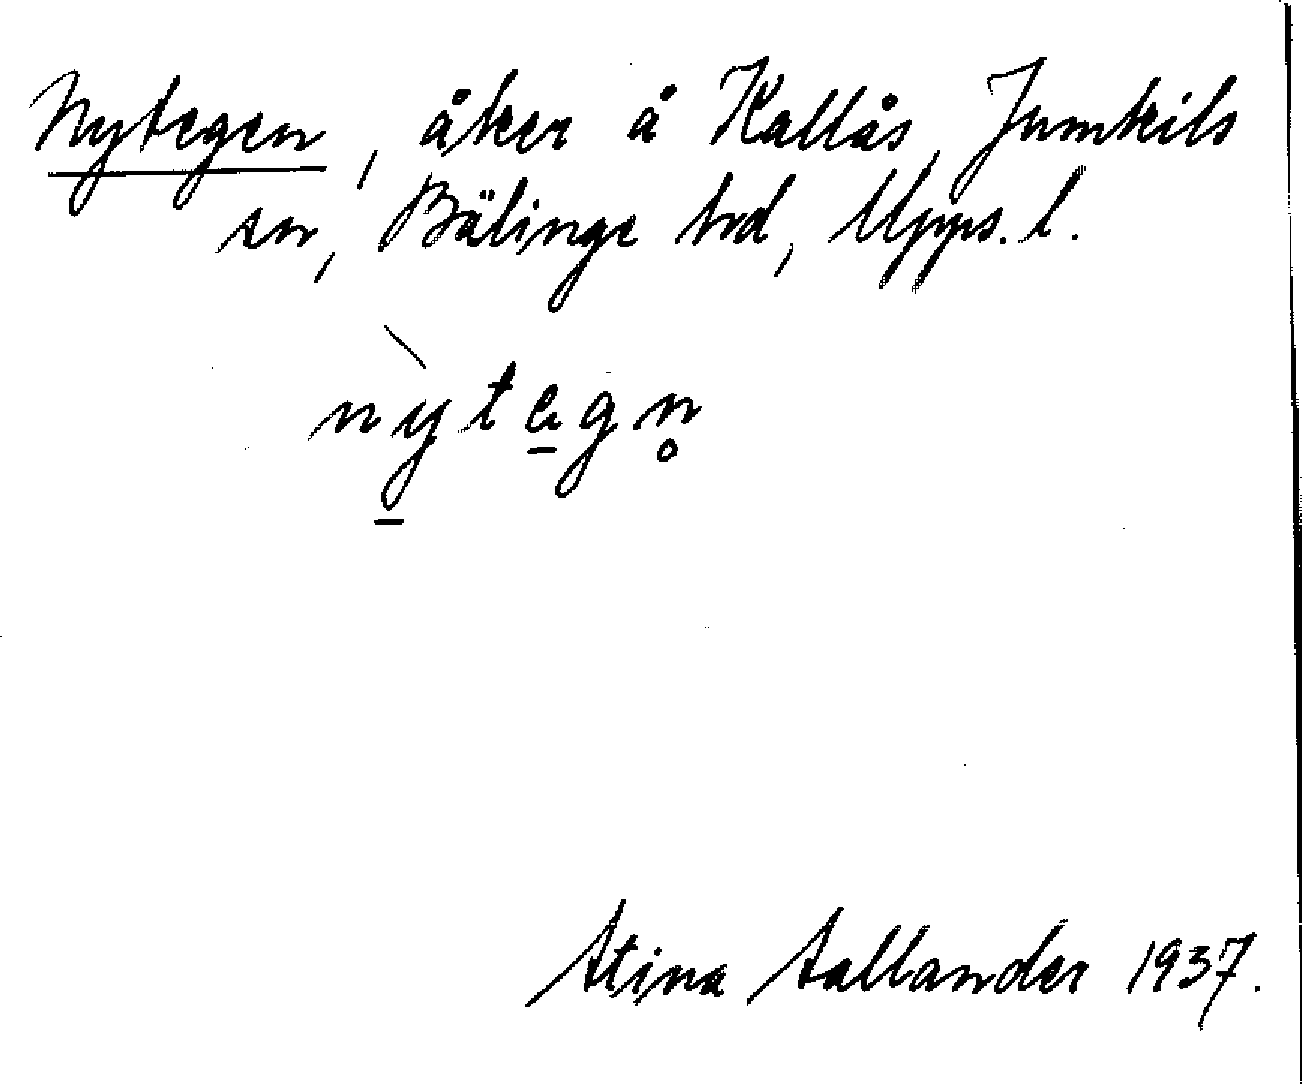 Nytegen, åker å Kallås, Jumkils
sn, Bälinge hd, Upps. l.
nỳ̠te̠gn̥
Stina Sallander 1937.